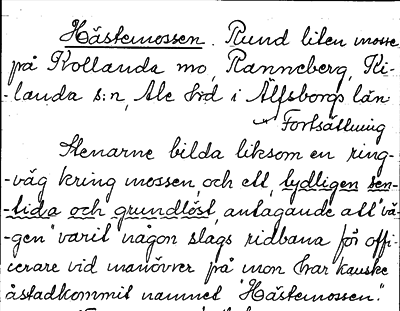 Hästemossen. Rund liten mosse
på Kollanda mo, Ranneberg, Ki-
-landa s:n, Ale h:d i Älfsborgs län.
Fortsättning
Stenarne bilda liksom en ring-
-väg kring mossen, och ett, tydligen sen-
-tida och grundlöst, antagande att "vä-
-gen" varit någon slags ridbana för offi-
cerare vid manöver på mon har kanske
åstadkommit namnet "Hästemossen."